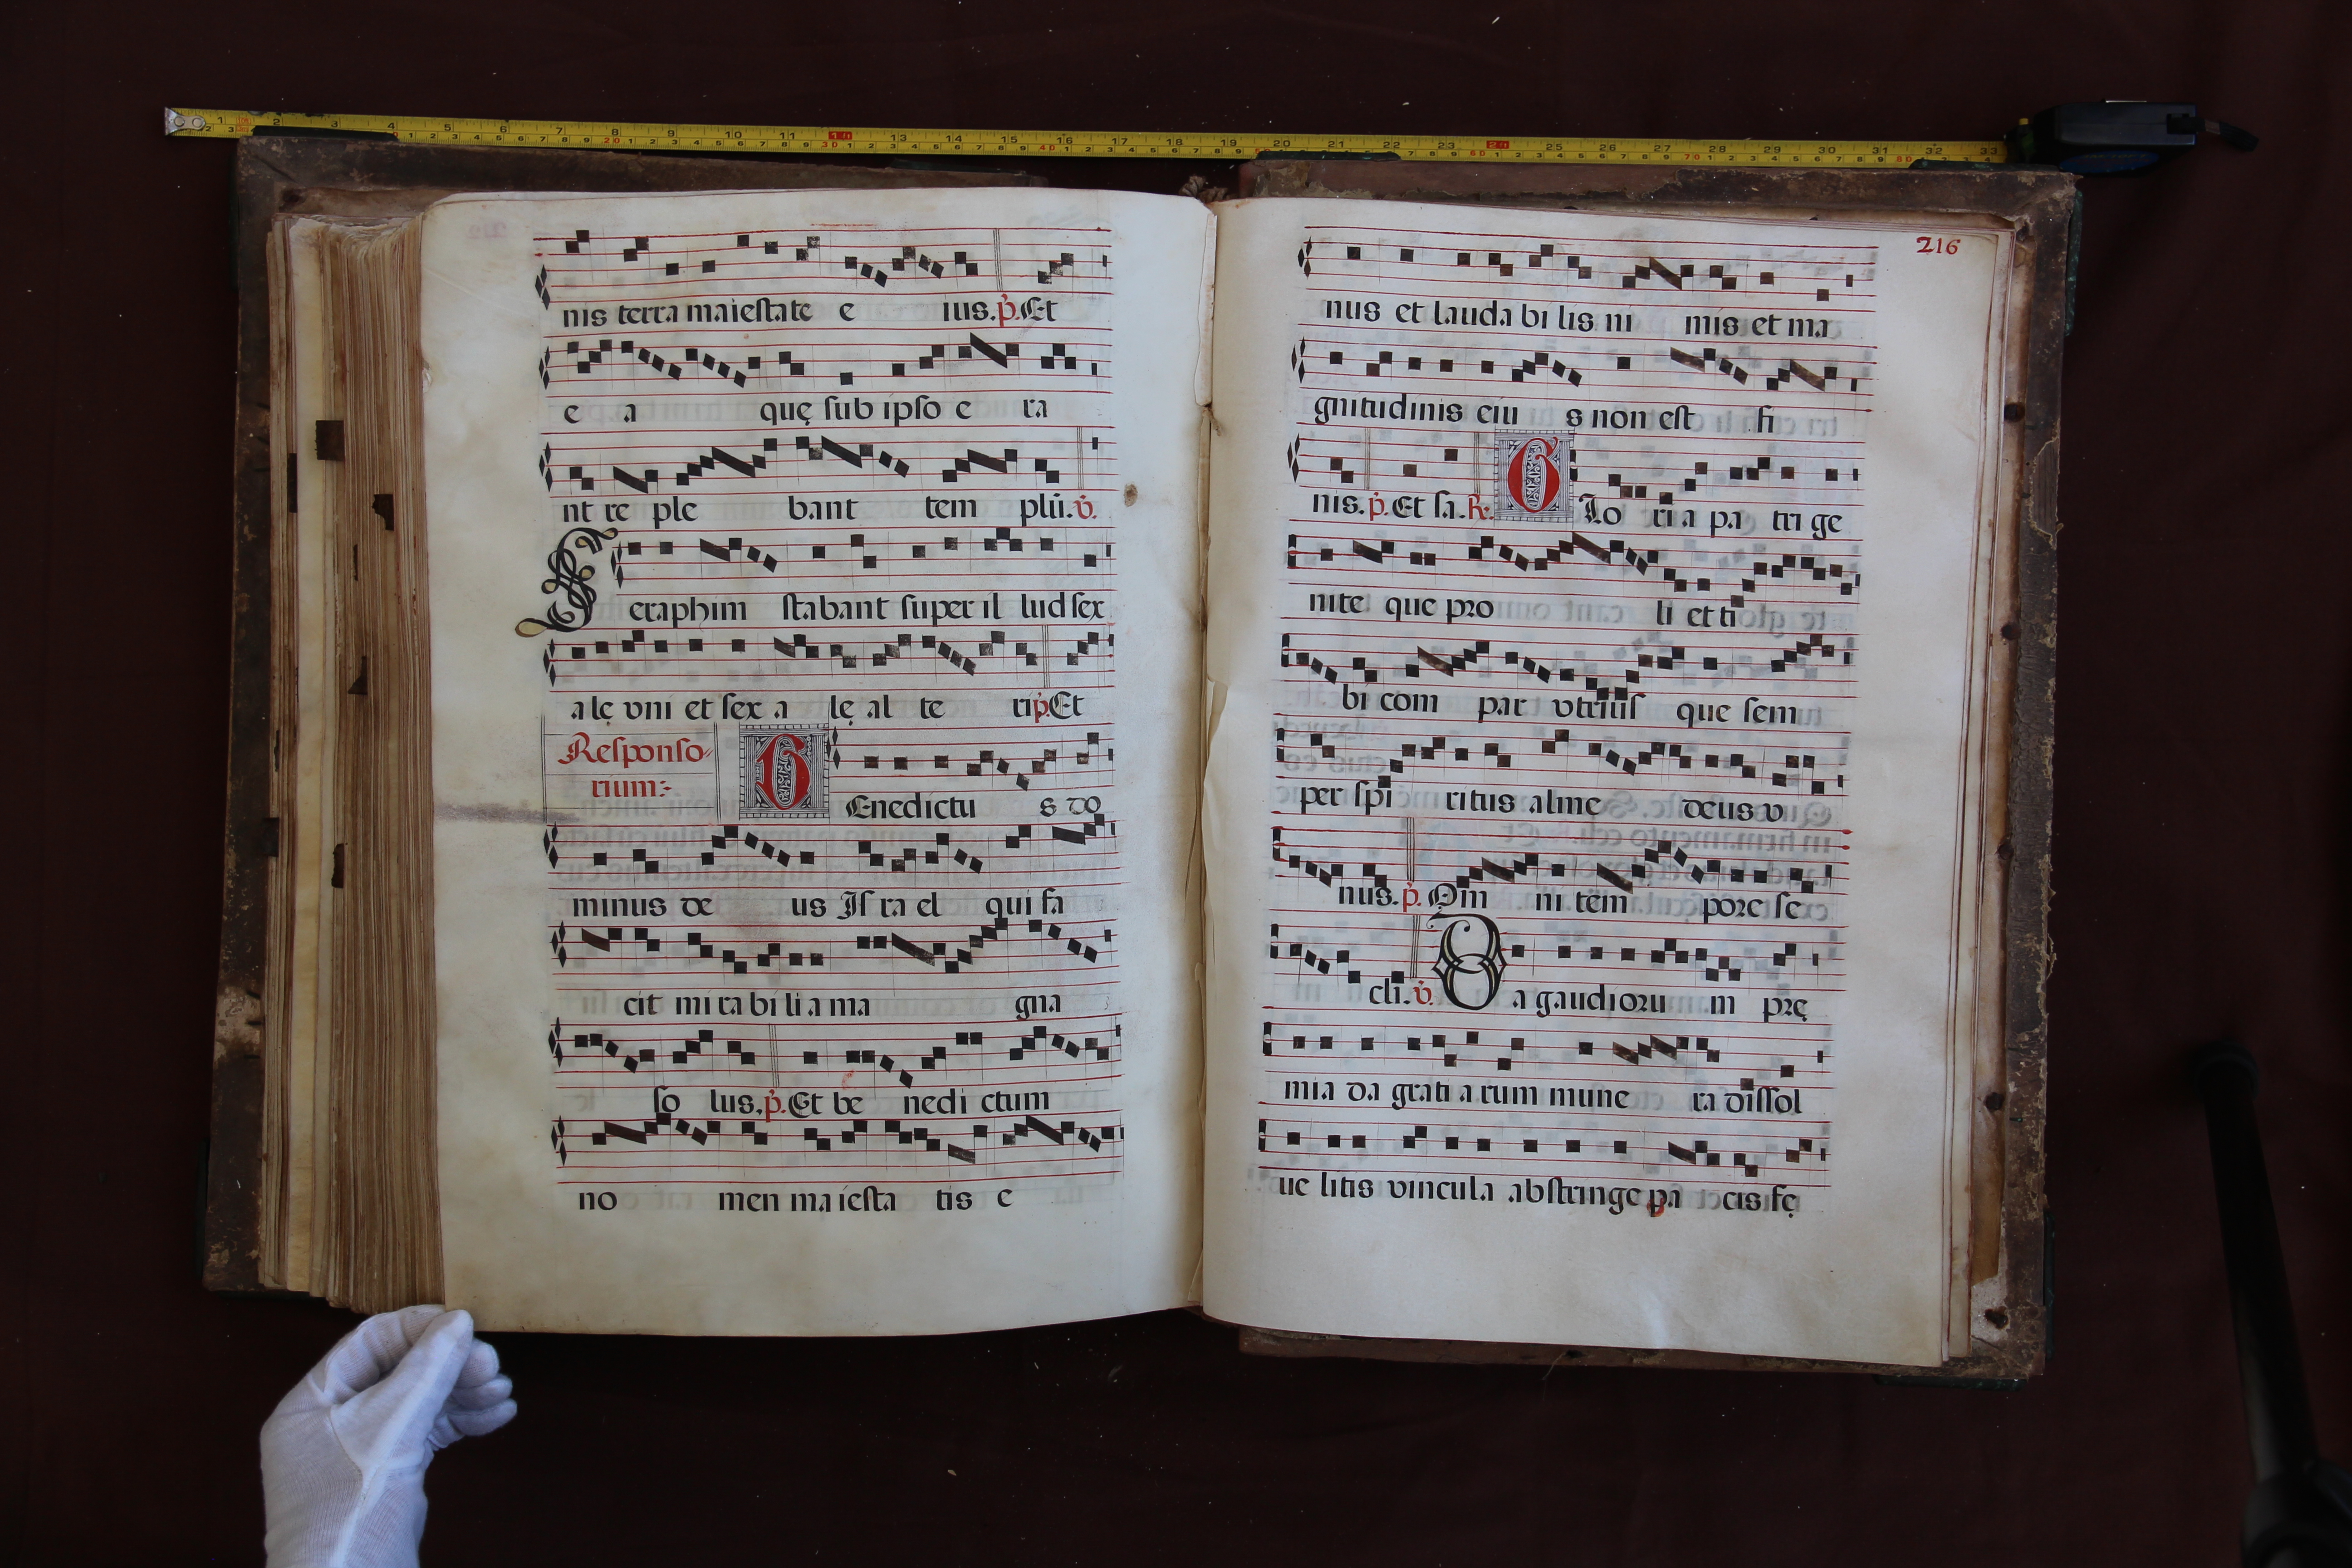 nis terra maiestate e ius. p. Et
e a quę sub ipso e ra
nt re ple bant tem plū. v.
Seraphim stabant super il lud sex
alę vni et sex a lę al te ri p. Et
Responso-
rium:
BEnedictu s do
minus de us Is ra el qui fa
cit mi ra bi li a ma gna
so lus. p. Et be nedi ctum
no men ma iesta tis e
216
nus et lauda bi lis ni mis et ma
gnitudinis eiu s non est fi
nis. p. Et sa. R. GLo ri a pa tri ge
nite que pro li et ti
bi com par vtrius que sem
per spi ritus alme deus v
nus. p. Om ni tem pore se
cli. v. Da gaudioru m prę
mia da grati a rum mune ra dissol
ue litis vincula abstringe pa cis fę